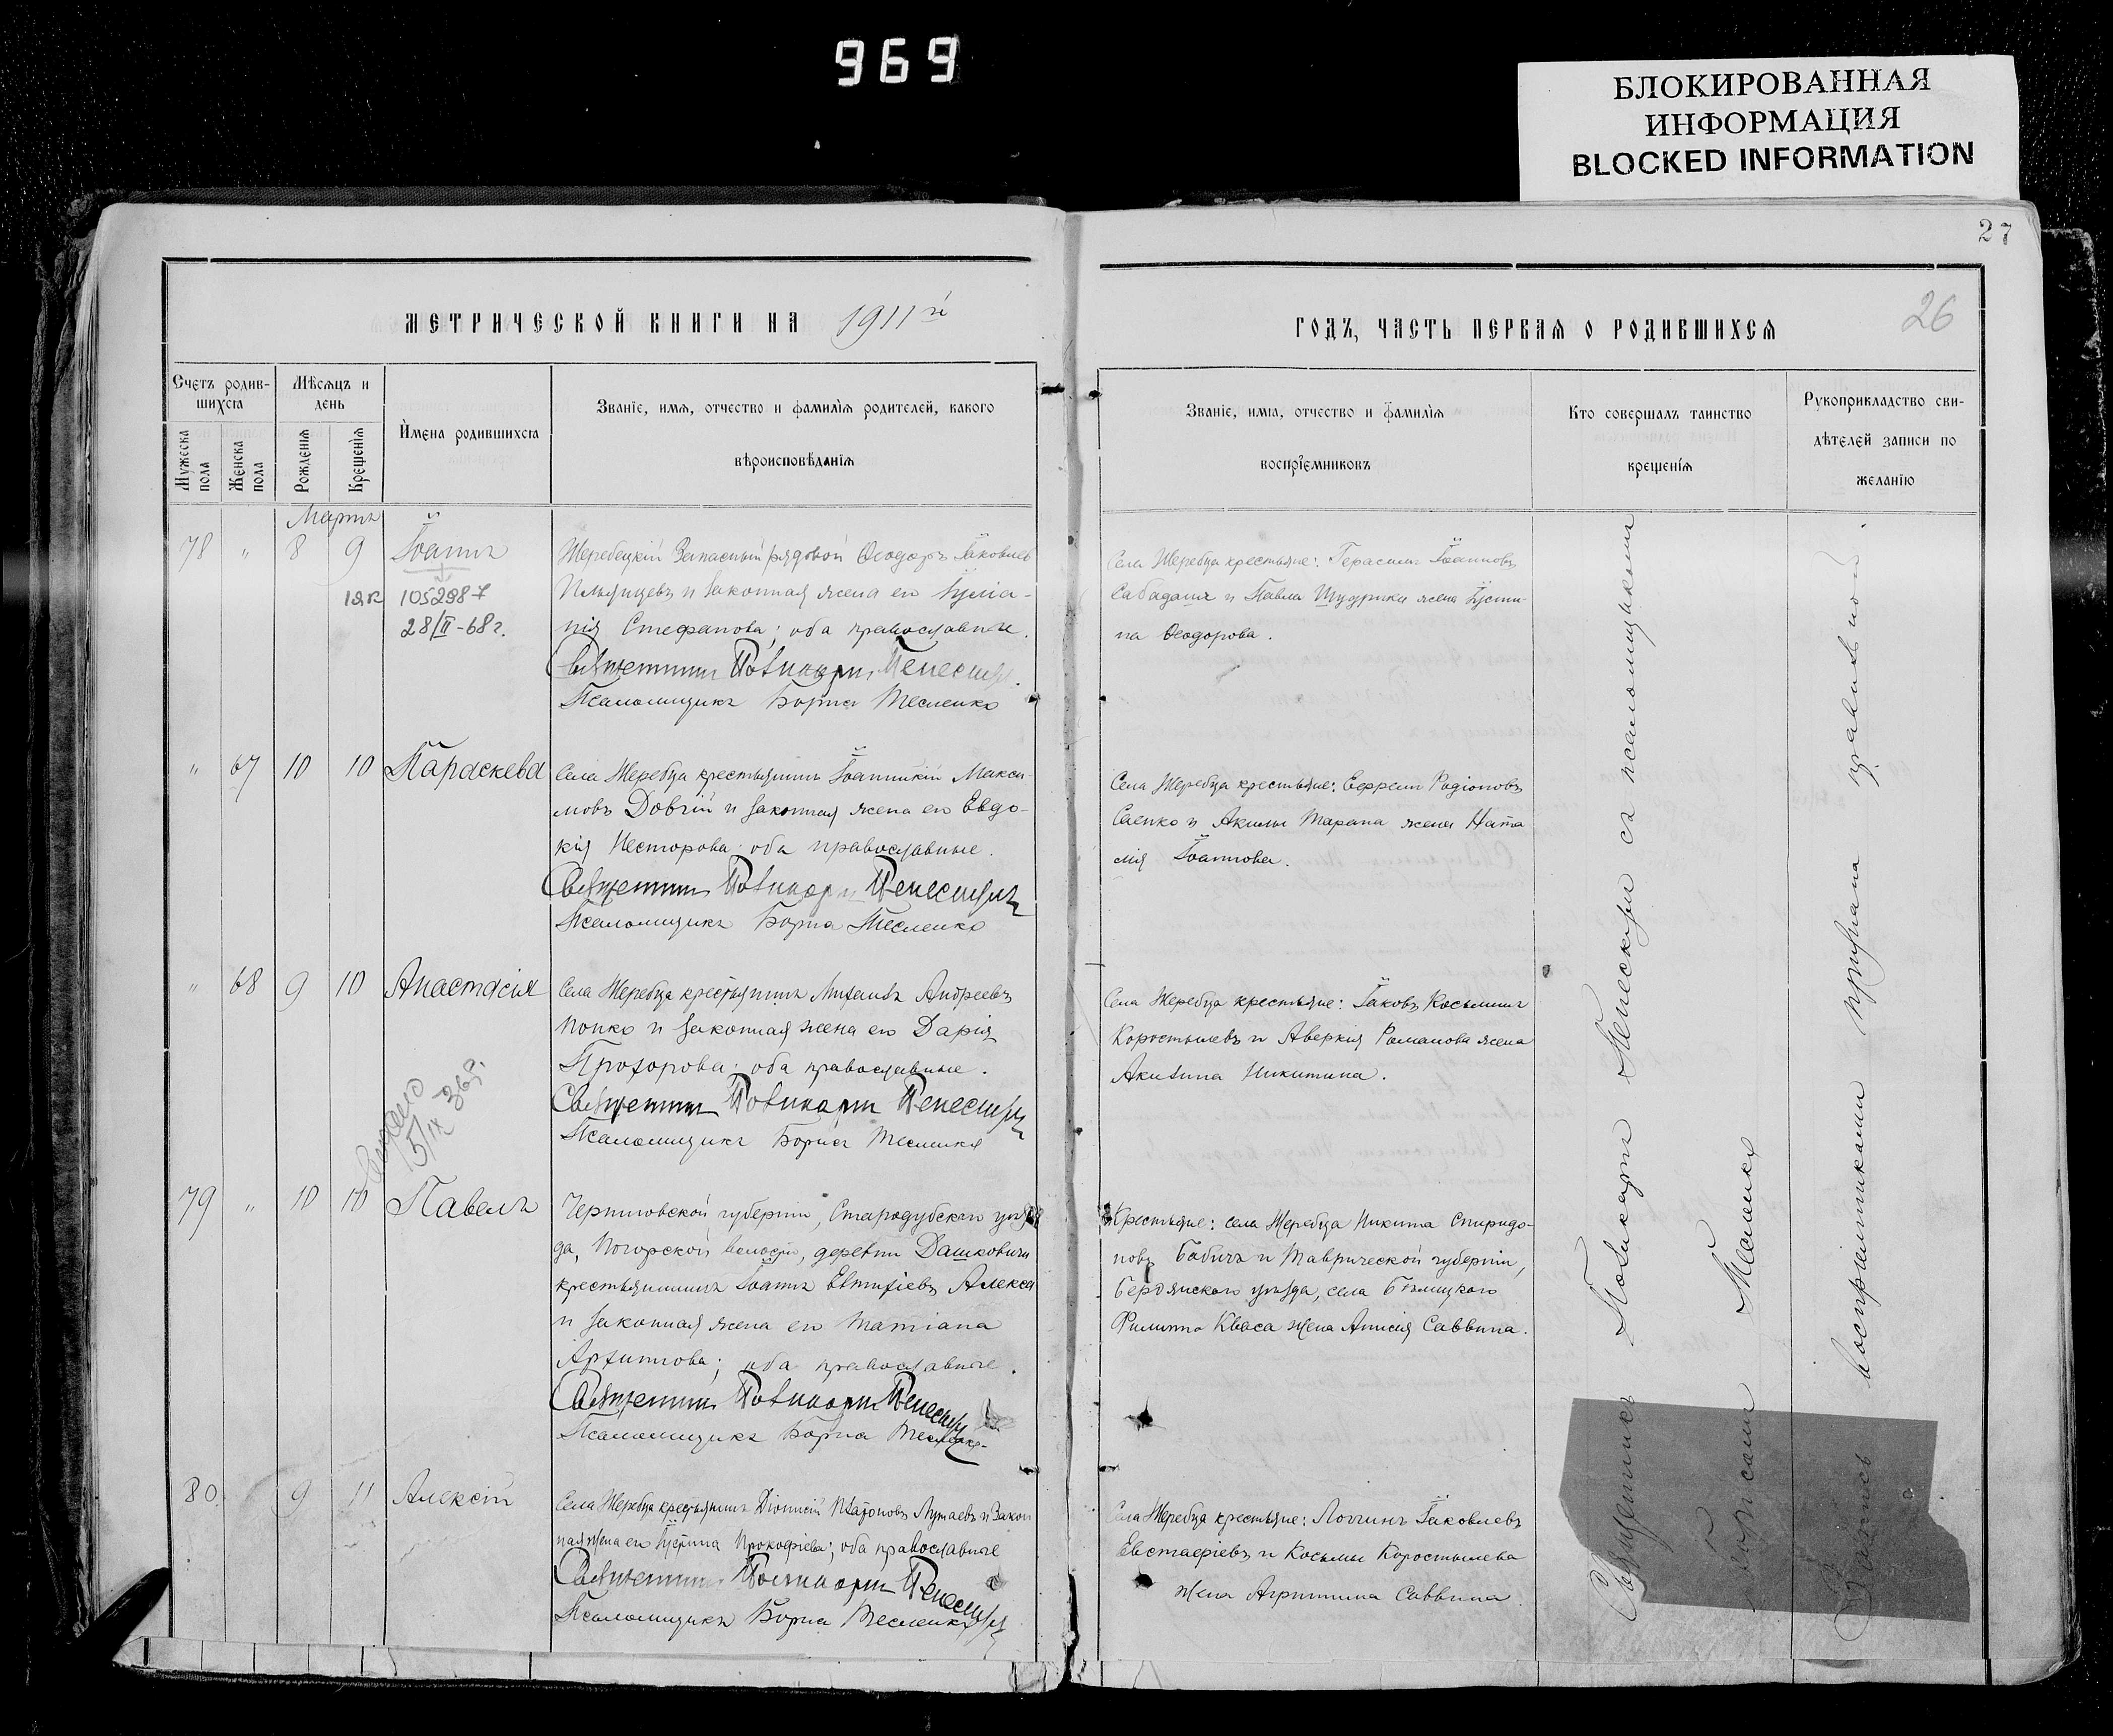 969
БЛОКИРОВАННАЯ
ИНФОРМАЦИЯ
BLOCKED INFORMATION
27
26
МЕТРИЧЕСКОЙ КНИГИ НА 1911й
ГОДЪ, ЧАСТЬ ПЕРВАЯ О РОДИВШИХСЯ
Счетъ родив-
шихся
Мужеска
пола
Женска
пола
Мѣсяцъ и
день
Рожденія
Крещенія
Имена родившихся
Званіе, имя, отчество и фамилія родителей, какого
вѣроисповѣданія
Званіе, имя, отчество и фамилія
воспріемниковъ
Кто совершалъ таинство
крещенія
Рукоприкладство сви-
дѣтелей записи по
желанію
Мартъ
78 " 8 9 Іоаннъ
105298 7
28/II-68г.
Жеребецкій Запасный рядовой Ѳеодоръ Іаковлевъ
и законная жена его Іуліа-
нія Стефанова; оба православные.
Священникъ Поликарпъ
Псаломщикъ Борисъ Тесленко
Села Жеребца крестьяне: Герасимъ Іоанновъ
Сабадашъ и Павла жена Іусти-
на Ѳеодорова.
" 67 10 10 Параскева
Села Жеребца крестьянинъ Іоанникій Макси-
мовъ Довгій и законная жена его Евдо-
кія Несторова; оба православные.
Священникъ Поликарпъ
Псаломщикъ Борисъ Тесленко
Села Жеребца крестьяне: Ефремъ Родіоновъ
Саенко и Акилы Тарана жена Ната
лія Іоаннова.
" 68 9 10 Анастасія
Села Жеребца крестьянинъ Михаилъ Андреевъ
Попко и законная жена его Дарія
Прохорова; оба православные.
Священникъ Поликарпъ
Псаломщикъ Борисъ Тесленко
Села Жеребца крестьяне: Іаковъ Косьминъ
Коростылевъ и Аверкія Романова жена
Акилина Никитина.
5/IX 36г.
79 " 10 10 Павелъ
Черниговской губерніи, Стародубскаго уѣз-
да, Погорской волости, деревни Дашковичи
крестьянинъ Іоаннъ Евтихіевъ Алекса
и законная жена его Татіана
Архипова; оба православные.
Священникъ Поликарпъ
Псаломщикъ Борисъ Тесленко
Крестьяне: села Жеребца Никита Спиридо-
новъ Бабичъ и Таврической губерніи,
Бердянскаго уѣзда, села
Филиппа Кваса жена Анисія Саввина.
80 9 11 Алексій
Села Жеребца крестьянинъ Діонисій Платоновъ и Закон
ная жена его Прокофіева; оба православные
Священникъ Поликарпъ
Псаломщикъ Борисъ Тесленко
Села Жеребца крестьяне: Логгинъ Іаковлевъ
Евстафіевъ и Косьмы Коростылева
жена Агриппина Саввина
Священникъ Поликарпъ съ псаломщикомъ
Борисомъ Тесленко
Запись воспріемниками признана правильной.